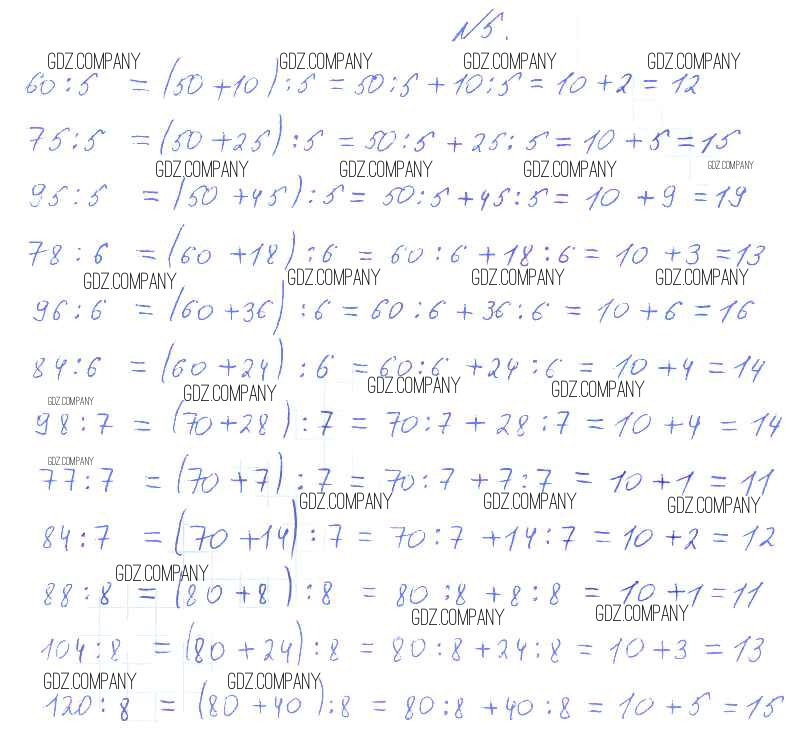 N5.
GDZ.COMPANY GDZ.COMPANY GDZ.COMPANY GDZ.COMPANY
60:5 = (50+10):5 = 50:5 + 10:5 = 10+2 = 12
75:5 = (50+25):5 = 50:5 + 25:5 = 10+5 = 15
GDZ.COMPANY GDZ.COMPANY GDZ.COMPANY GDZ.COMPANY
95:5 = (50+45):5 = 50:5 + 45:5 = 10+9 = 19
78:6 = (60+18):6 = 60:6 + 18:6 = 10+3 = 13
GDZ.COMPANY GDZ.COMPANY GDZ.COMPANY GDZ.COMPANY
96:6 = (60+36):6 = 60:6 + 36:6 = 10+6 = 16
84:6 = (60+24):6 = 60:6 + 24:6 = 10+4 = 14
GDZ.COMPANY GDZ.COMPANY GDZ.COMPANY GDZ.COMPANY
98:7 = (70+28):7 = 70:7 + 28:7 = 10+4 = 14
GDZ.COMPANY
77:7 = (70+7):7 = 70:7 + 7:7 = 10+1 = 11
GDZ.COMPANY GDZ.COMPANY GDZ.COMPANY
84:7 = (70+14):7 = 70:7 + 14:7 = 10+2 = 12
GDZ.COMPANY
88:8 = (80+8):8 = 80:8 + 8:8 = 10+1 = 11
GDZ.COMPANY GDZ.COMPANY
104:8 = (80+24):8 = 80:8 + 24:8 = 10+3 = 13
GDZ.COMPANY GDZ.COMPANY
120:8 = (80+40):8 = 80:8 + 40:8 = 10+5 = 15